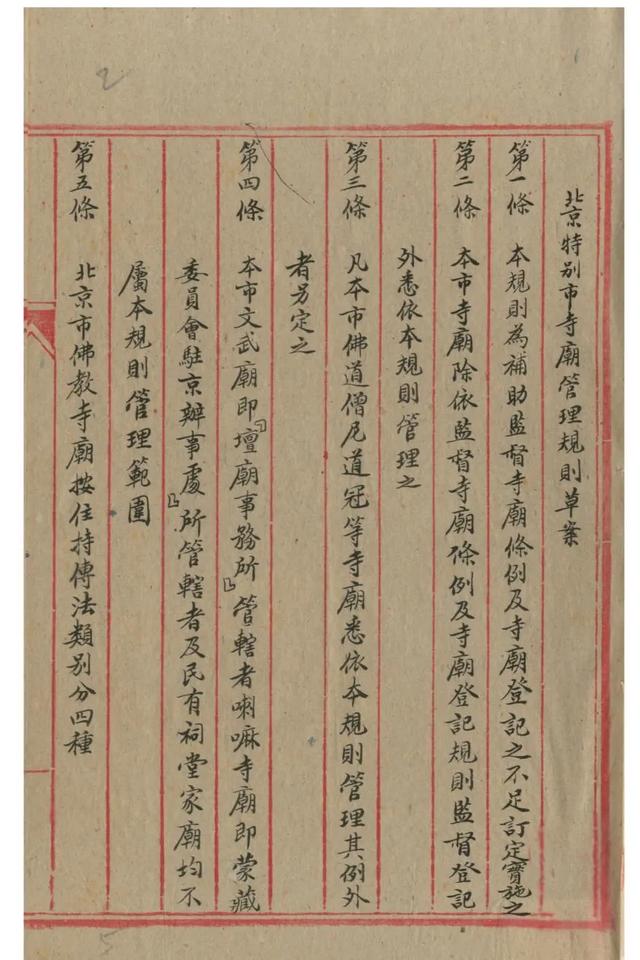 北京特别市寺廟管理規則草案
第一條 本規則為補助監督寺廟條例及寺廟登記之不足訂定實施之
第二條 本市寺廟除依監督寺廟條例及寺廟登記規則監督登記
外悉依本規則管理之
第三條 凡本市佛道僧尼道冠等寺廟悉依本規則管理其例外
者另定之
第四條 本市文武廟即「壇廟事務所」管轄者喇嘛寺廟即蒙藏
委員會駐京辦事處」所管轄者及民有祠堂家廟均不
屬本規則管理範圍
第五條 北京市佛教寺廟按住持傳法類别分四種
2
5